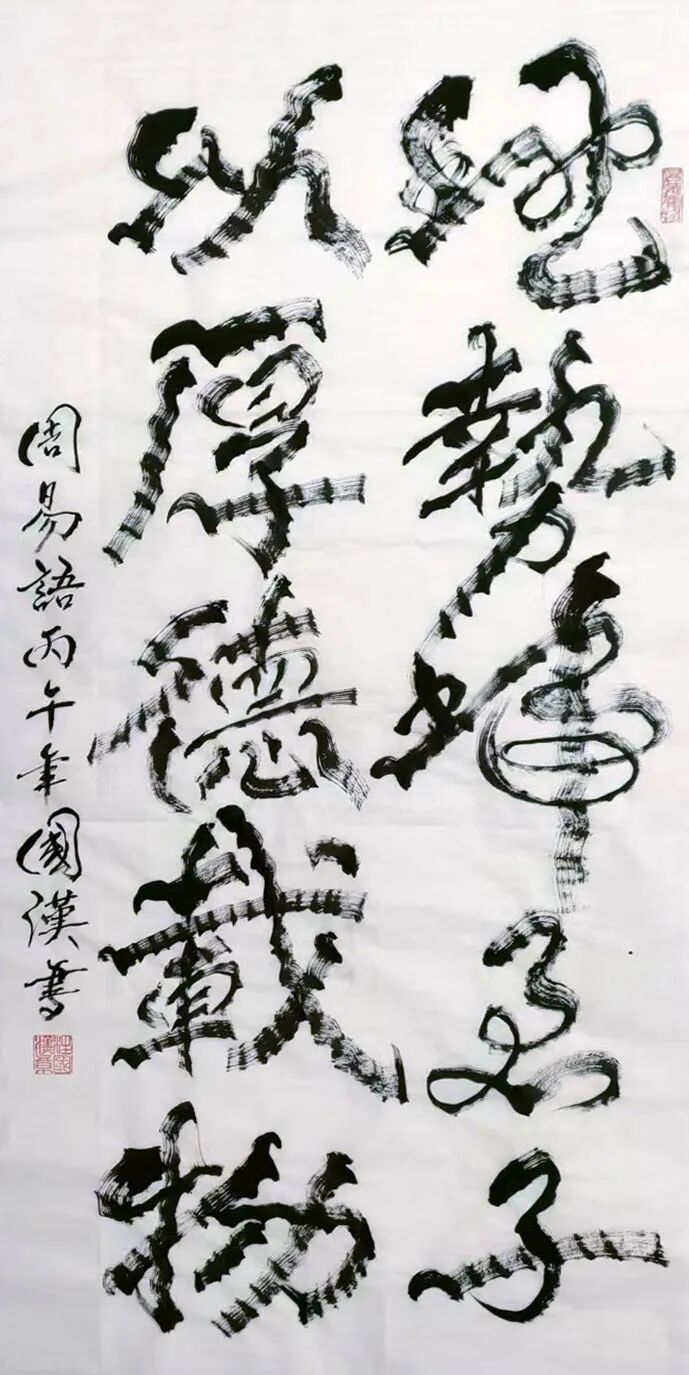 地勢坤君子
以厚德載物
周易語丙午年國漢書